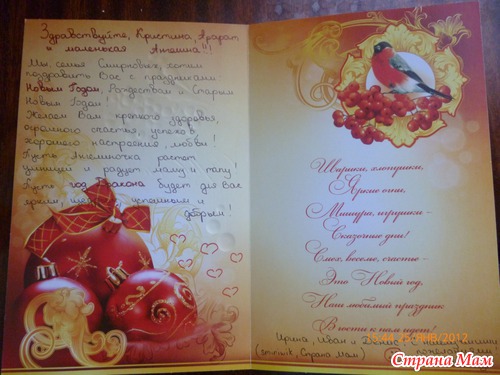 Здравствуйте, Кристина, Арарат
и маленькая Ангелина!!!
Мы, семья Смирновых, хотим
поздравить Вас с праздниками
Новым Годом, Рождеством и Старым
Новым Годом!
Желаем Вам крепкого здоровья,
огромного счастья, успехов,
хорошего настроения, любви!
Пусть Ангелиночка растет
умницей и радует маму и папу!
Пусть год Дракона будет для Вас
ярким, успешным и
добрым!
Шарики, хлопушки,
Яркие огни,
Мишура, игрушки -
Сказочные дни!
Смех, веселье, счастье -
Это Новый год,
Наш любимый праздник
В гости к нам идет!
Ирина, Иван и Денис, С наилучшими
Страна Мам) пожеланиями!
2012
Страна Мам